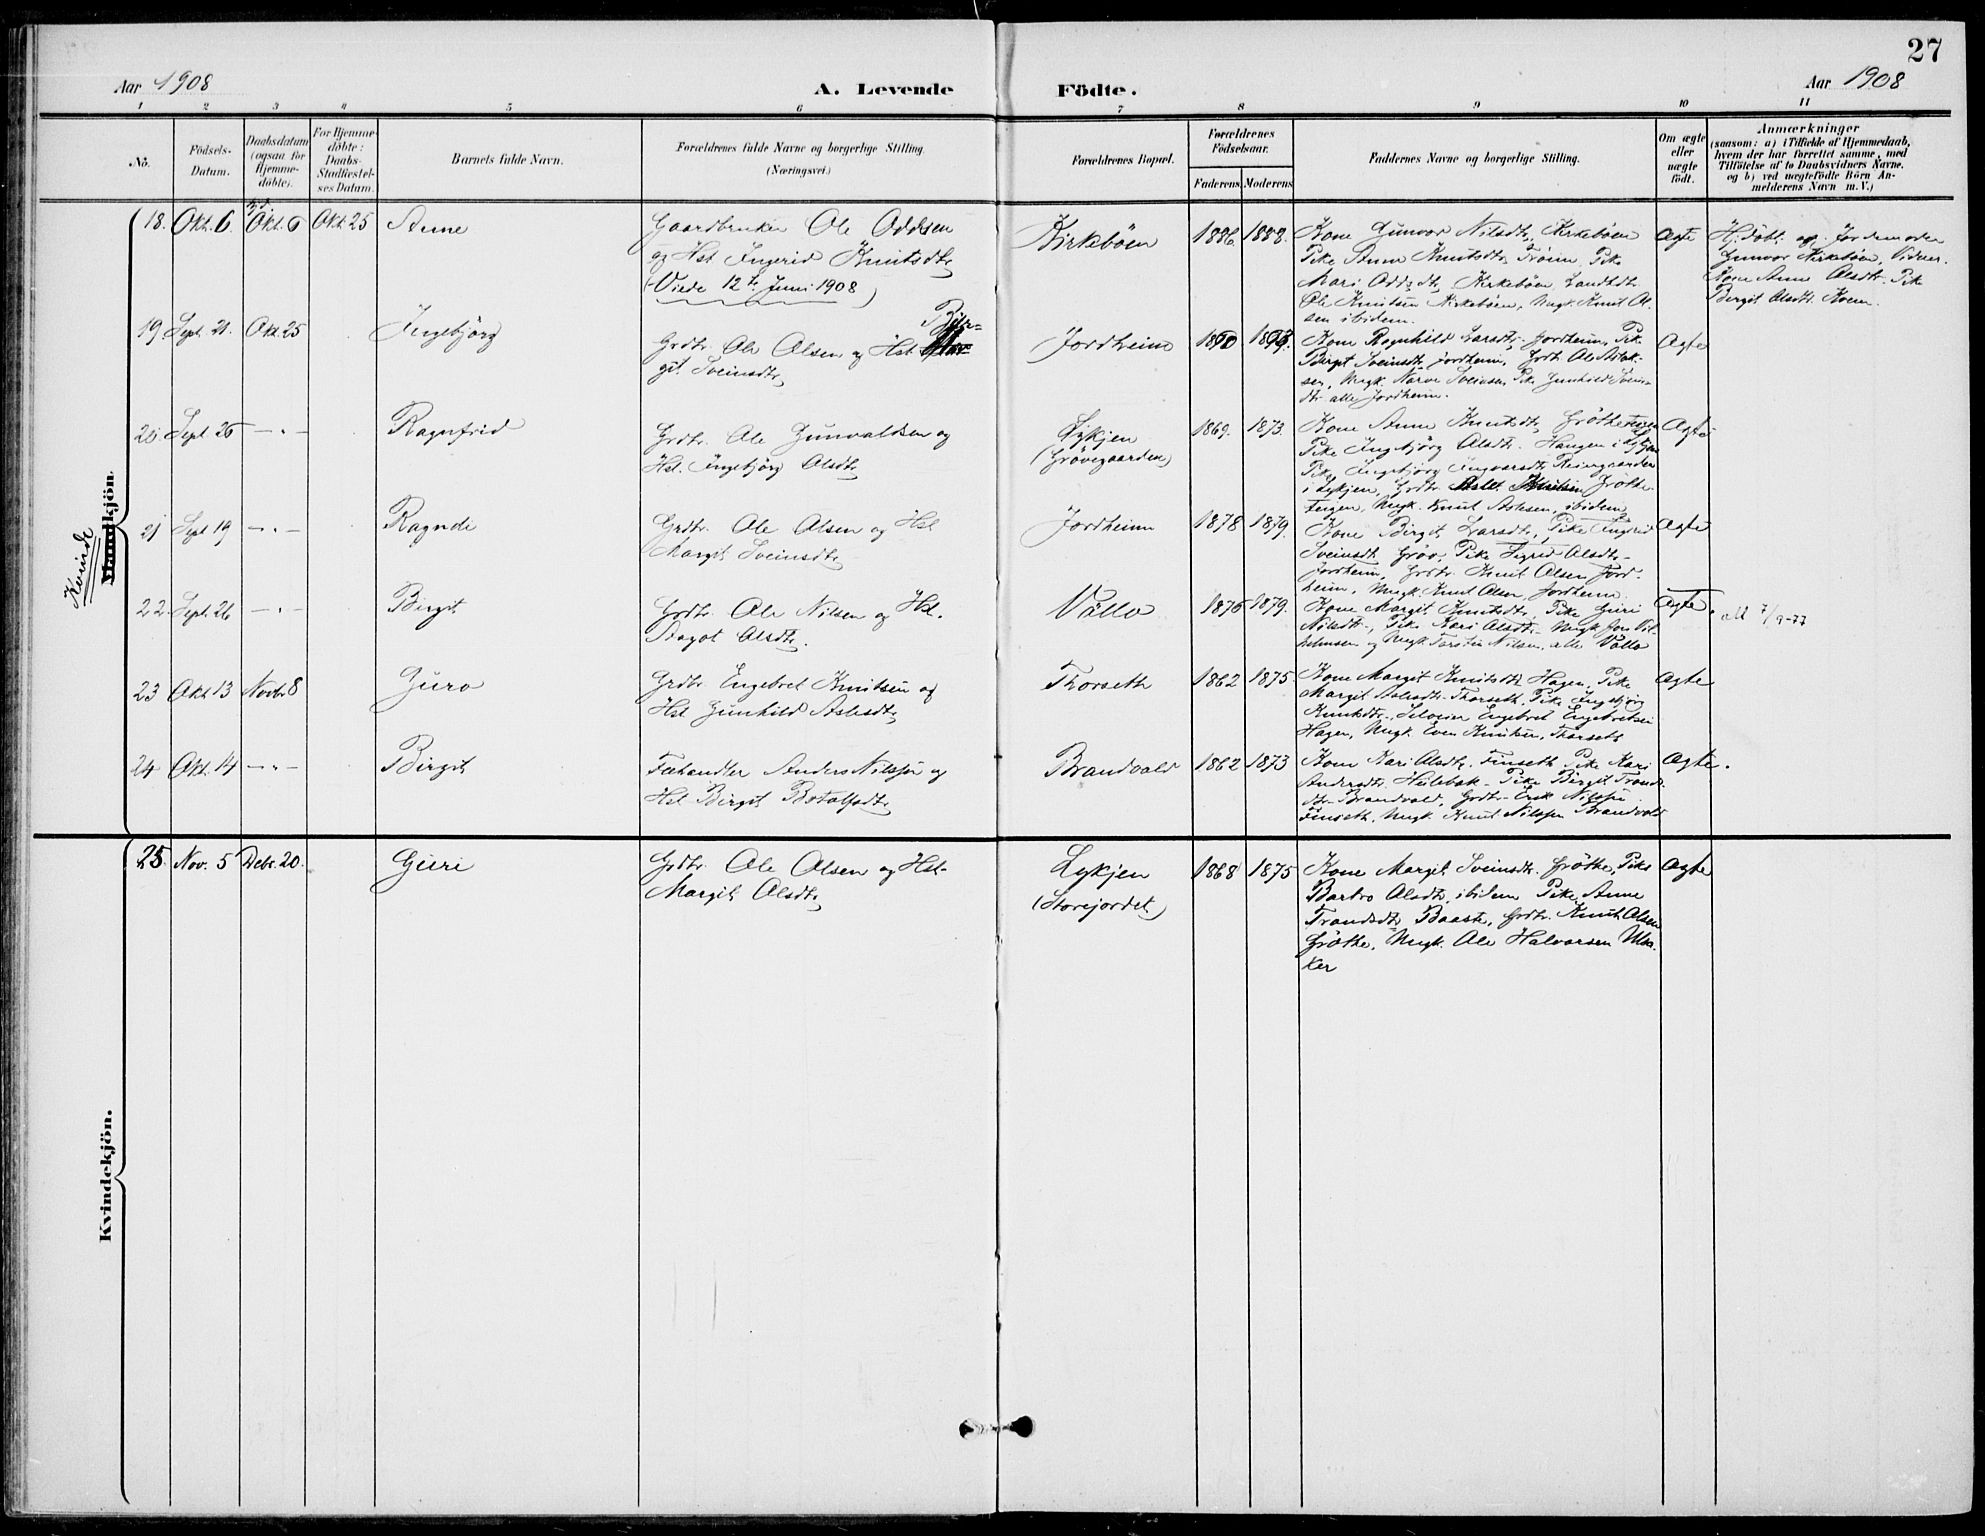 27
Aar 1908
A. Levende
Födte.
Aar 1908
1 2 3 4 5 6 7 8 9 10 11
No.
Födsels-
Datum.
Daabsdatum
(ogsaa for
Hjemme-
döbte).
For Hjemme-
döbte:
Daabs-
Stadfæstel-
ses Datum.
Barnets fulde Navn.
Forældrenes fulde Navne og borgerlige Stilling
(Næringsvei.)
Forældrenes Bopæl.
Forældrenes
Födselsaar.
Faderens
Moderens
Faddernes Navne og borgerlige Stilling.
Om ægte
eller
uægte
födt.
Anmærkninger
(saasom: a) i Tilfælde af Hjemmedaab,
hvem der har forrettet samme, med
Tilföielse af to Daabsvidners Navne,
og b) ved uægtefödte Börn An-
melderens Navn m. V.)
Kvinde
Mandkjön.
18. Okt. 6. Okt. 6 Okt. 25 Anne
Gaardbruker Ole Oddsen
og Hst. Ingerid Knutsdtr
(Viede 12te Juni 1908)
Kirkeböen 1886. 1888.
Kone Gunvor Nilsdtr, Kirkeböen
Pike Anne Knutsdtr Tröim, Pike
Mari Oddsdtr, Kirkeböen,
Ole Knutsen Kirkeböen, Ungk. Knut Ol-
sen ibidem.
Ægte
Hj. döbt. af Jordemoder
Gunvor Kirkeböen, Vidner.
Kone Anne Olsdtr. Pike
Birgit Olsdtr. Kvem.
19 Sept. 21. Okt. 25 Ingebjörg
Grdbr. Ole Olsen og Hst. Bir-
git Sveinsdtr
Jordheim
Kone Ragnhild Larsdtr, Jordheim, Pike
Birgit Sveinsdtr Jordheim, Grdbr. Ole Aslak-
sen, Ungk. Narve Sveinsen, Pike Gunhild Svein-
dtr alle Jordheim.
Ægte
20. Sept. 26 — " — Ragnfrid
Grdbr. Ole Gunvaldsen og
Hst. Ingebjörg Olsdtr
Lykjen
(Grövegaarden)
1869. 1873.
Kone Anne Knutsdtr, Gröthe
Pike Ingebjörg Olsdtr. Haugen i Lykjen
Pike Ingebjörg Ingvarsdtr
i Lykjen, Grdbr. Aslet Knutsen Gröthe-
Engen, Ungk. Knut Aslesen, ibidem
Ægte
21 Sept 19 — " — Ragndi
Grdbr. Ole Olsen og Hst
Margit Sveinsdtr
Jordheim 1878 1879.
Kone Birgit Larsdtr, Pike Ingrid
Sveinsdtr Gröv, Pike Sigrid Olsdtr-
Jordheim, Grdbr. Knut Olsen Jord-
heim, Ungk. Knut Olsen Jordheim.
Ægte
22. Sept. 26 — " — Birgit
Grdbr. Ole Nilsen og Hst.
Dagot Olsdtr.
Völlo 1876 1879.
Kone Margit Knutsdtr, Pike Guri
Nilsdtr, Pike Kari Olsdtr. Ungk. Jon Vil-
helmsen og Ungk. Torstein Nilsen, alle Völlo
Ægte.
7/9-77
23 Okt 13 Novbr 8 Guro
Grdbr. Engebret Knutsen og
Hst Gunhild Aslesdtr
Thorseth 1862 1875
Kone Margit Knutsdtr Hagen, Pike
Margit Aslesdtr Thorseth, Pike Ingebjörg
Knutsdtr, Engebret Engebretsen
Hagen, Ungk. Even Knutsen, Thorseth
Ægte
24 Okt. 14 — " — Birgit
Fæhandler Anders Nilssen og
Hst Birgit Botolfsdtr
Brandvold 1862 1873
Kone Kari Olsdtr. Finseth Pike Kari
Andersdtr. Heilebak - Pike Birgit Trond-
dtr - Brandvold, Grdbr. Erik Nilssen
Finseth, Ungk. Knut Nilssen Brandvold
Ægte.
Kvindekjön.
25. Nov. 5 Debr. 20. Guri
Grdbr. Ole Olsen og Hst-
Margit Olsdtr
Lykjen
(Storejordet)
1868 1875
Kone Margit Sveinsdtr. Gröthe, Pike
Barbro Olsdtr, ibidem Pike Anne
Trondsdtr Baaste, Grdbr. Knut Olsen
Gröthe, Ungk. Ole Halvorsen Moe-
ker
Ægte